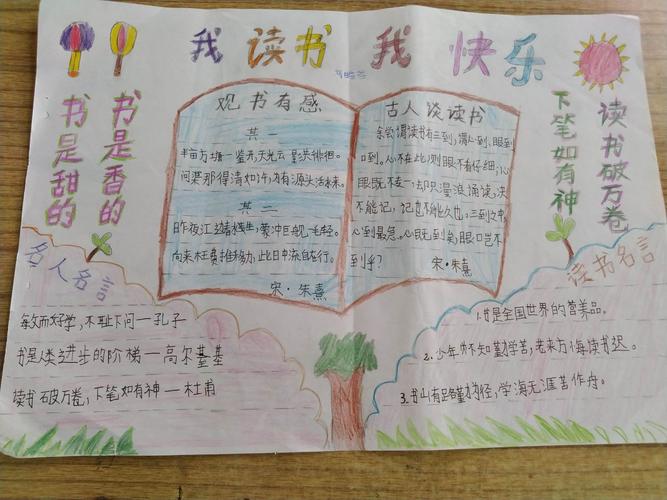 我读书 我快乐
书是香的
书是甜的
观书有感
其一
半亩方塘一鉴开,天光云影共徘徊。
问渠那得清如许,为有源头活水来。
其二
昨夜江边春水生,蒙冲巨舰一毛轻。
向来枉费推移力,此日中流自在行。
宋·朱熹
古人谈读书
余尝谓读书有三到,谓心到、眼到
口到。心不在此,则眼不看仔细,心
眼既不专一,却只漫浪诵读,决
不能记,记也不能久也。三到之中
心到最急。心既到矣,眼口岂不
到乎?
宋·朱熹
读书破万卷
下笔如有神
名人名言
敏而好学,不耻下问—孔子
书是人类进步的阶梯—高尔基
读书破万卷,下笔如有神—杜甫
读书名言
书是全国世界的营养品。
2.少年不知勤学苦,老来方悔读书迟。
3.书山有路勤为径,学海无涯苦作舟。